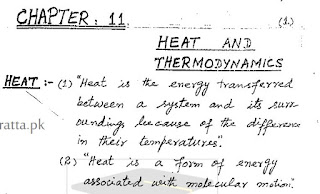 CHAPTER : 11. (1.)
HEAT AND
THERMODYNAMICS
HEAT :- (1) "Heat is the energy transferred
between a system and its surr-
oundings because of the difference
ratta.pk
in their temperatures".
(2) "Heat is a form of energy
associated with molecular motion".